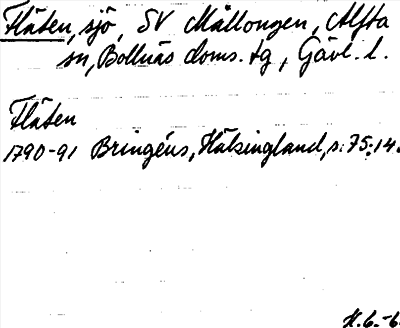 Fläten, sjö, SV Mållongen, Alfta
sn, Bollnäs doms. tg, Gävl. l.
Fläten
1790-91 Bringéus, Hälsingland, s. 75:14.
H.6.-6.